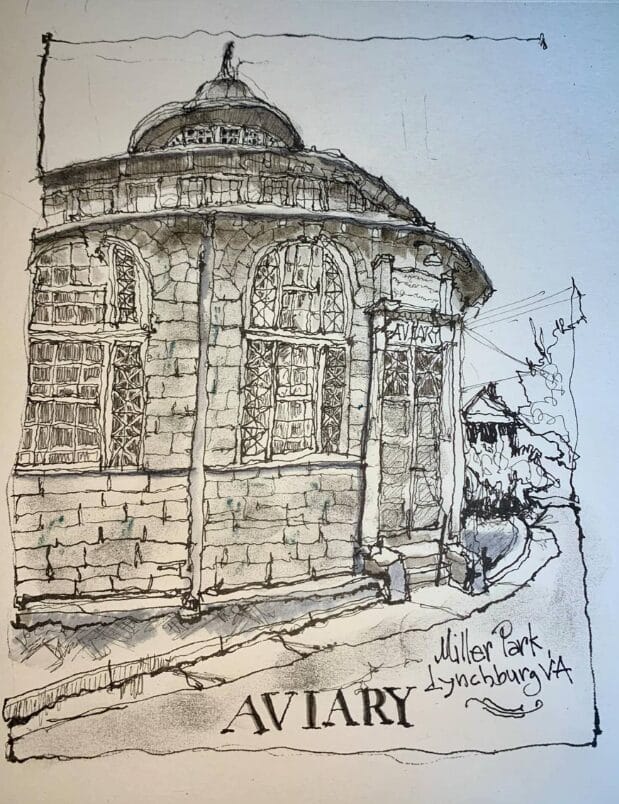 AVIARY
Miller Park,
Lynchburg VA
AVIARY